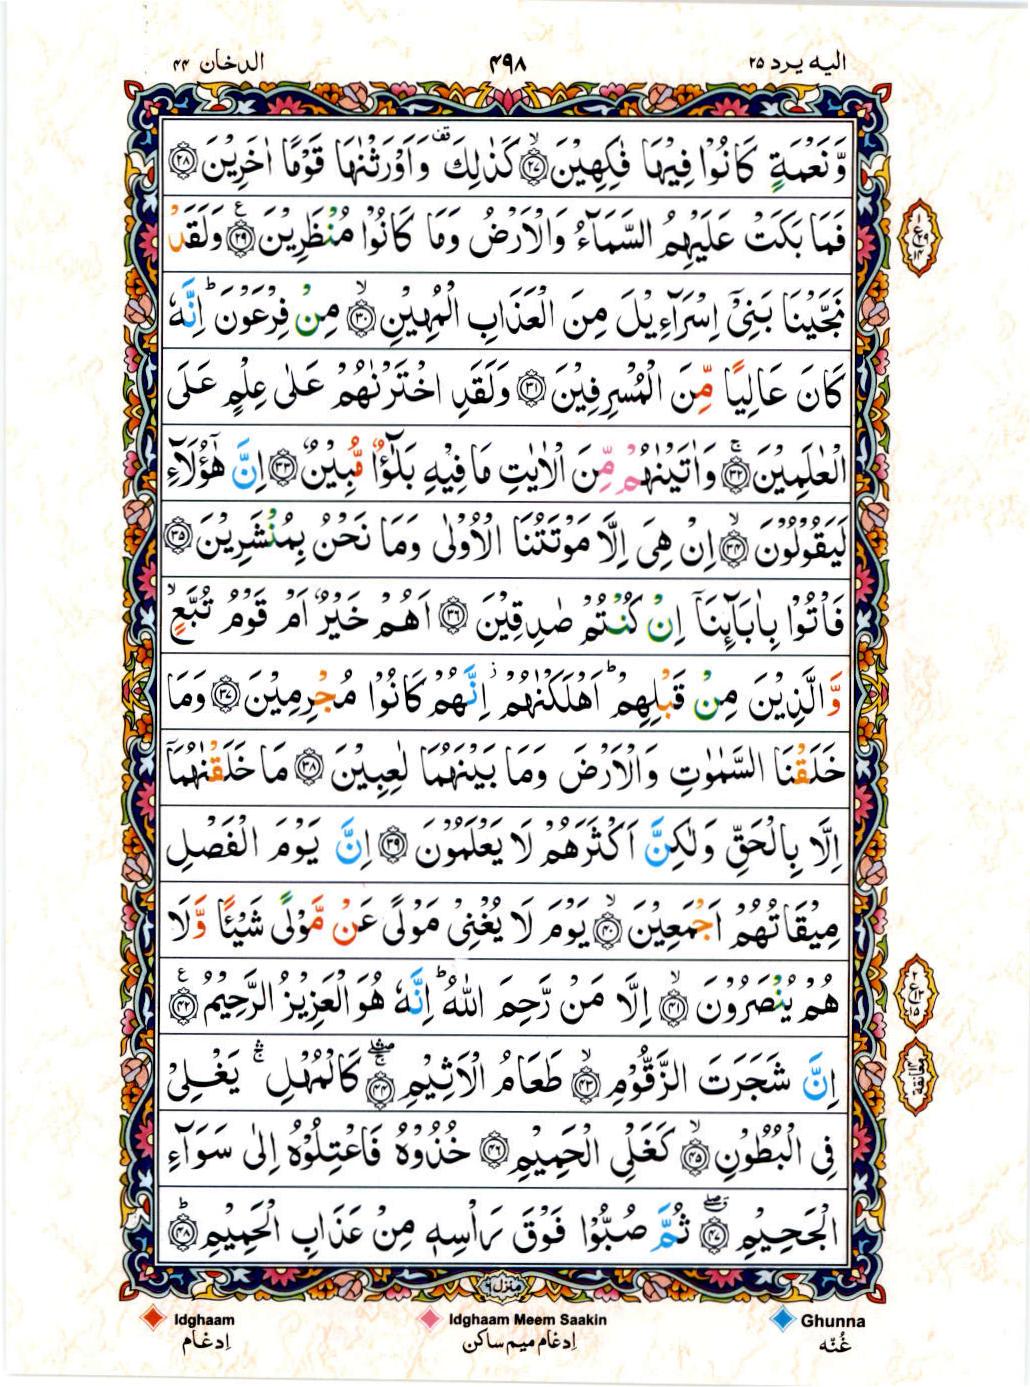 الیه یرد ۲۵
۴۹۸
الدخان ۴۴
وَّنَعْمَةٍ كَانُوْا فِيْهَا فٰكِهِيْنَ ۙ﴿۲۷﴾ كَذٰلِكَ ۫ وَاَوْرَثْنٰهَا قَوْمًا اٰخَرِيْنَ ﴿۲۸﴾
فَمَا بَكَتْ عَلَيْهِمُ السَّمَآءُ وَالْاَرْضُ وَمَا كَانُوْا مُنْظَرِيْنَ ﴿۲۹﴾ وَلَقَدْ
نَجَّيْنَا بَنِيْۤ اِسْرَآءِيْلَ مِنَ الْعَذَابِ الْمُهِيْنِ ۙ﴿۳۰﴾ مِنْ فِرْعَوْنَ ؕ اِنَّهٗ
كَانَ عَالِيًا مِّنَ الْمُسْرِفِيْنَ ﴿۳۱﴾ وَلَقَدِ اخْتَرْنٰهُمْ عَلٰى عِلْمٍ عَلَى
الْعٰلَمِيْنَ ۚ﴿۳۲﴾ وَاٰتَيْنٰهُمْ مِّنَ الْاٰيٰتِ مَا فِيْهِ بَلٰٓؤٌا مُّبِيْنٌ ﴿۳۳﴾ اِنَّ هٰۤؤُلَآءِ
لَيَقُوْلُوْنَ ۙ﴿۳۴﴾ اِنْ هِيَ اِلَّا مَوْتَتُنَا الْاُوْلٰى وَمَا نَحْنُ بِمُنْشَرِيْنَ ﴿۳۵﴾
فَاْتُوْا بِاٰبَآئِنَاۤ اِنْ كُنْتُمْ صٰدِقِيْنَ ﴿۳۶﴾ اَهُمْ خَيْرٌ اَمْ قَوْمُ تُبَّعٍ ۙ
وَّالَّذِيْنَ مِنْ قَبْلِهِمْ ؕ اَهْلَكْنٰهُمْ ۫ اِنَّهُمْ كَانُوْا مُجْرِمِيْنَ ﴿۳۷﴾ وَمَا
خَلَقْنَا السَّمٰوٰتِ وَالْاَرْضَ وَمَا بَيْنَهُمَا لٰعِبِيْنَ ﴿۳۸﴾ مَا خَلَقْنٰهُمَاۤ
اِلَّا بِالْحَقِّ وَلٰكِنَّ اَكْثَرَهُمْ لَا يَعْلَمُوْنَ ﴿۳۹﴾ اِنَّ يَوْمَ الْفَصْلِ
مِيْقَاتُهُمْ اَجْمَعِيْنَ ۙ﴿۴۰﴾ يَوْمَ لَا يُغْنِيْ مَوْلًى عَنْ مَّوْلًى شَيْئًا وَّلَا
هُمْ يُنْصَرُوْنَ ۙ﴿۴۱﴾ اِلَّا مَنْ رَّحِمَ اللّٰهُ ؕ اِنَّهٗ هُوَ الْعَزِيْزُ الرَّحِيْمُ ﴿۴۲﴾
اِنَّ شَجَرَتَ الزَّقُّوْمِ ۙ﴿۴۳﴾ طَعَامُ الْاَثِيْمِ ﴿۴۴﴾ كَالْمُهْلِ ۛۚ يَغْلِيْ
فِي الْبُطُوْنِ ۙ﴿۴۵﴾ كَغَلْيِ الْحَمِيْمِ ﴿۴۶﴾ خُذُوْهُ فَاعْتِلُوْهُ اِلٰى سَوَآءِ
الْجَحِيْمِ ﴿۴۷﴾ ثُمَّ صُبُّوْا فَوْقَ رَاْسِهٖ مِنْ عَذَابِ الْحَمِيْمِ ؕ﴿۴۸﴾
معانقة
منزل ۶
Idghaam
ادغام
Idghaam Meem Saakin
ادغام میم ساکن
Ghunna
غُنّه